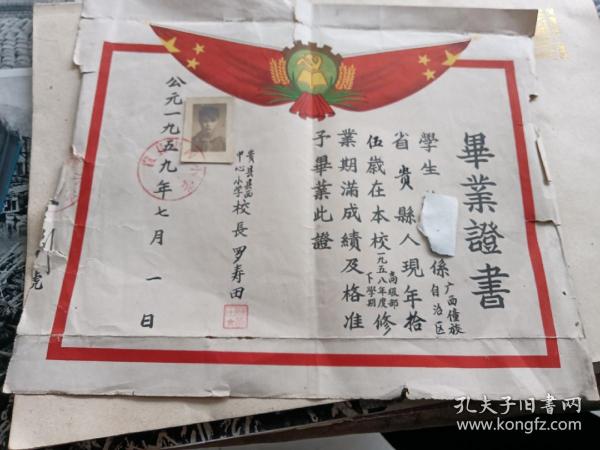 畢業證書
學生
係廣西僮族自治区
省貴縣人現年拾
伍歲在本校一九五八年度高級部下學期修
業期滿成績及格准
予畢業此證
貴县县西中心小学校長罗寿田
公元一九五九年七月一日
孔夫子旧書网
www.kongfz.com